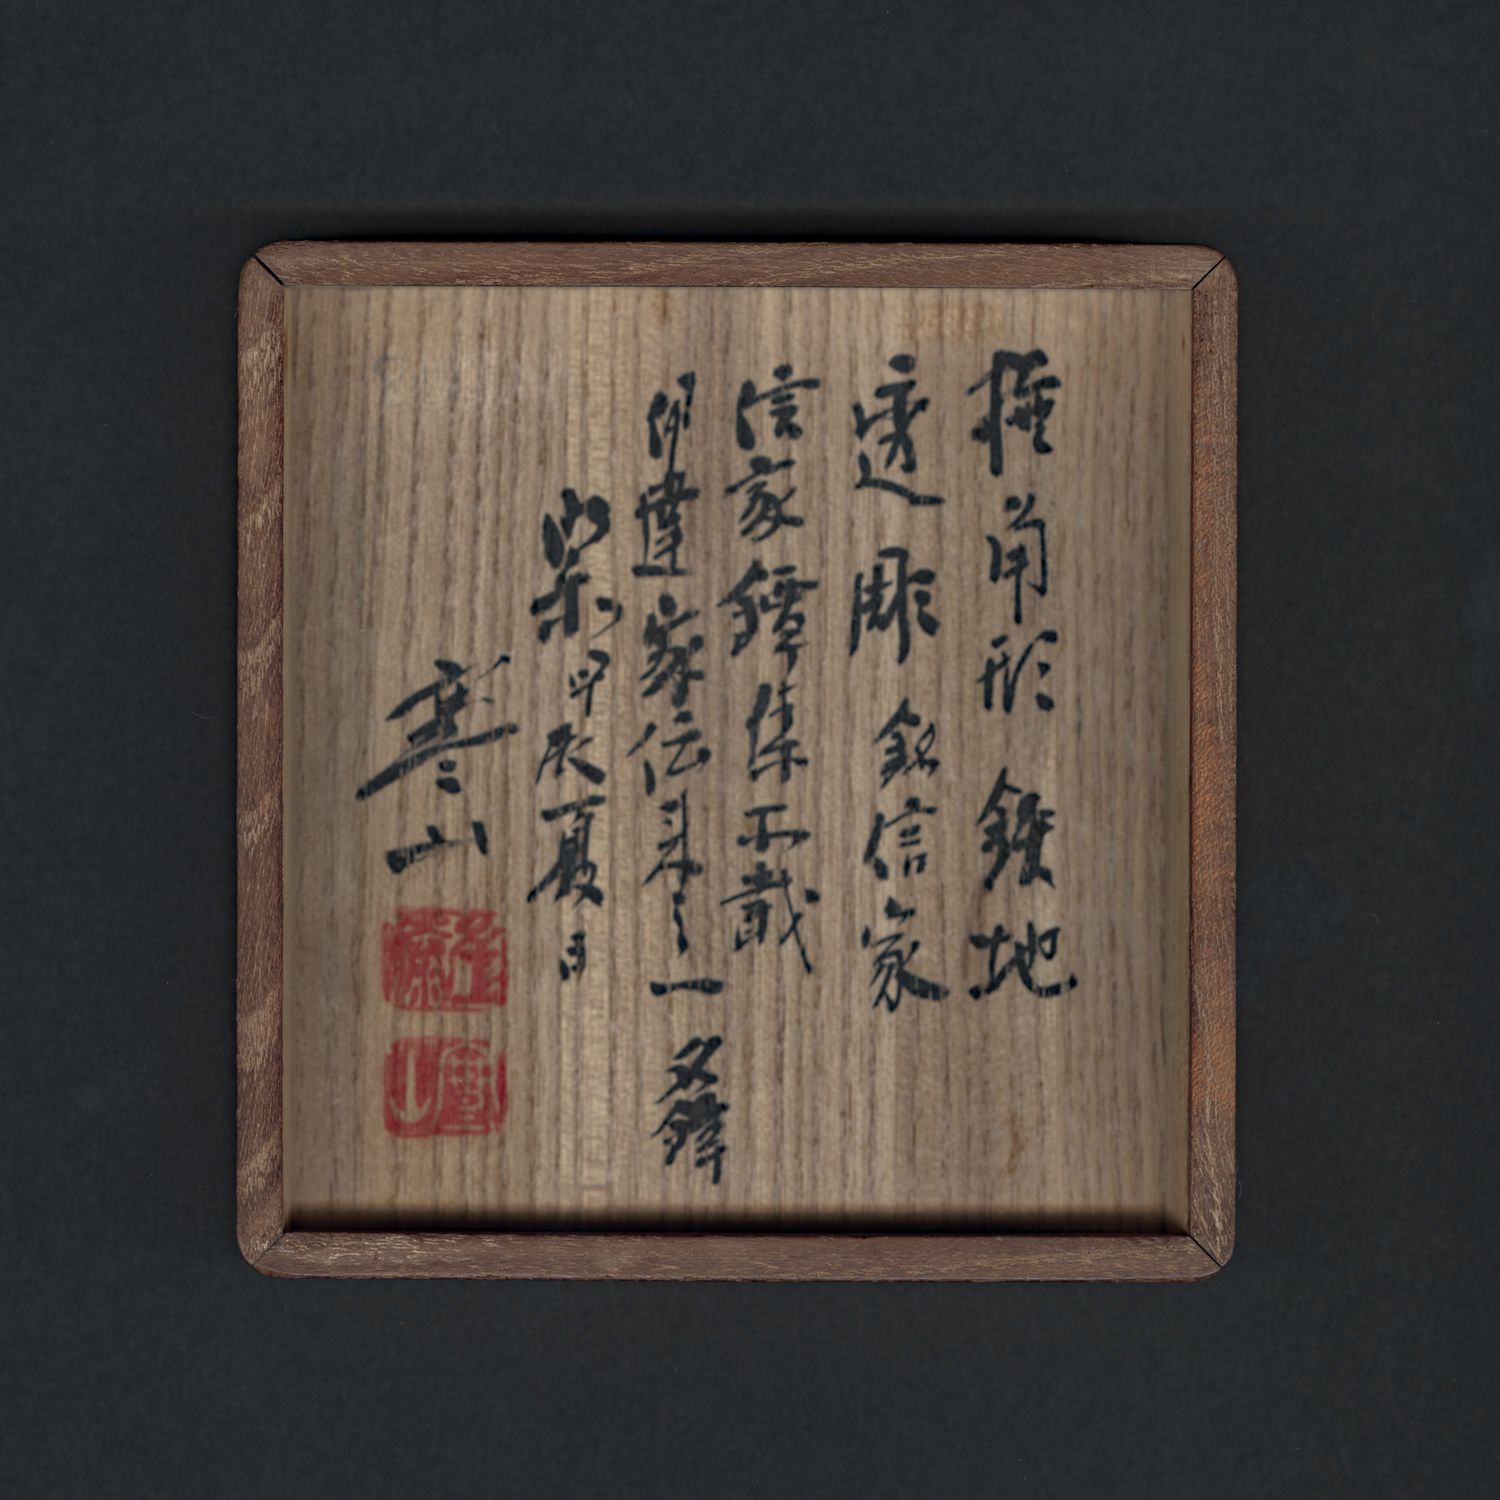 撫角形 鉄地
透彫 銘信家
信家鐔集所載
伊達家伝来之一名鐔
甲辰夏日
寒山
寒山